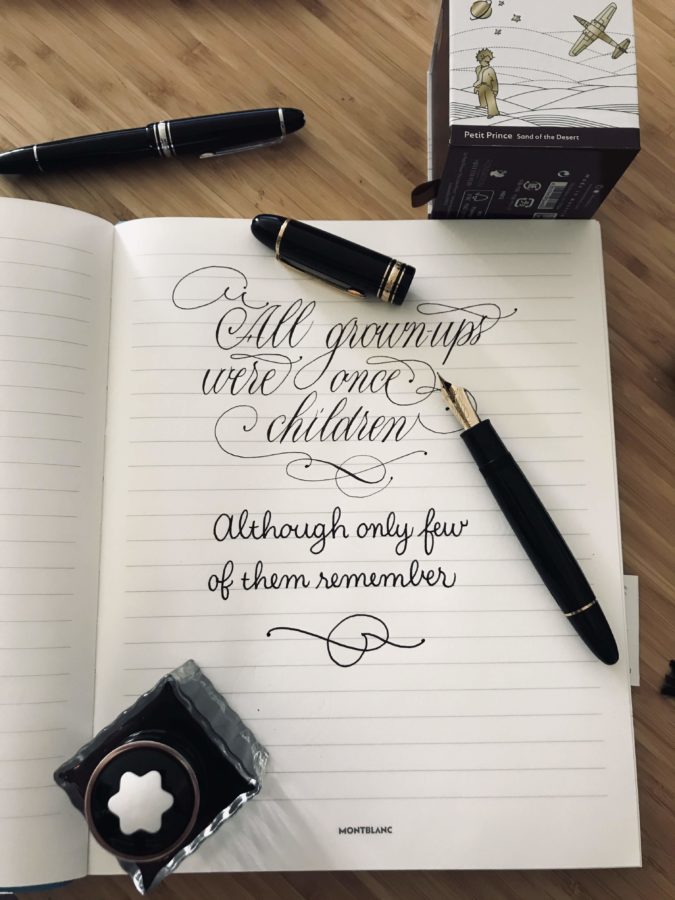 Petit Prince Sand of the Desert
All grown-ups
were once
children
Although only few
of them remember
MONTBLANC